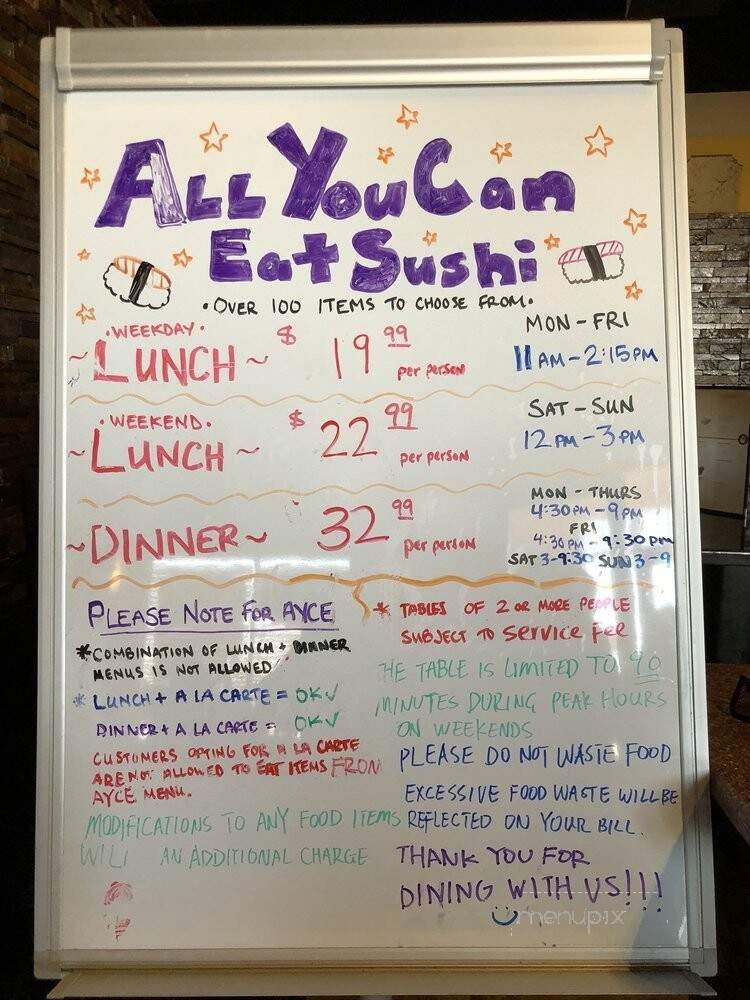 ALL YOU CAN
EAT SUSHI
• OVER 100 ITEMS TO CHOOSE FROM •
• WEEKDAY •
~ LUNCH ~ $ 19 99 per person
MON - FRI
11 AM - 2:15 PM
• WEEKEND •
~ LUNCH ~ $ 22 99 per person
SAT - SUN
12 PM - 3 PM
~ DINNER ~ 32 99 per person
MON - THURS
4:30 PM - 9 PM
FRI
4:30 PM - 9:30 PM
SAT 3-9:30 SUN 3-9
PLEASE NOTE FOR AYCE
* COMBINATION OF LUNCH + DINNER
MENUS IS NOT ALLOWED
* LUNCH + A LA CARTE = OK ✓
DINNER + A LA CARTE = OK ✓
CUSTOMERS OPTING FOR A LA CARTE
ARE NOT ALLOWED TO EAT ITEMS FROM
AYCE MENU.
MODIFICATIONS TO ANY FOOD ITEMS
WILL AN ADDITIONAL CHARGE
* TABLES OF 2 OR MORE PEOPLE
SUBJECT TO SERVICE FEE
HE TABLE IS LIMITED TO 90
MINUTES DURING PEAK HOURS
ON WEEKENDS
PLEASE DO NOT WASTE FOOD
EXCESSIVE FOOD WASTE WILL BE
REFLECTED ON YOUR BILL.
THANK YOU FOR
DINING WITH US!!!
menupix